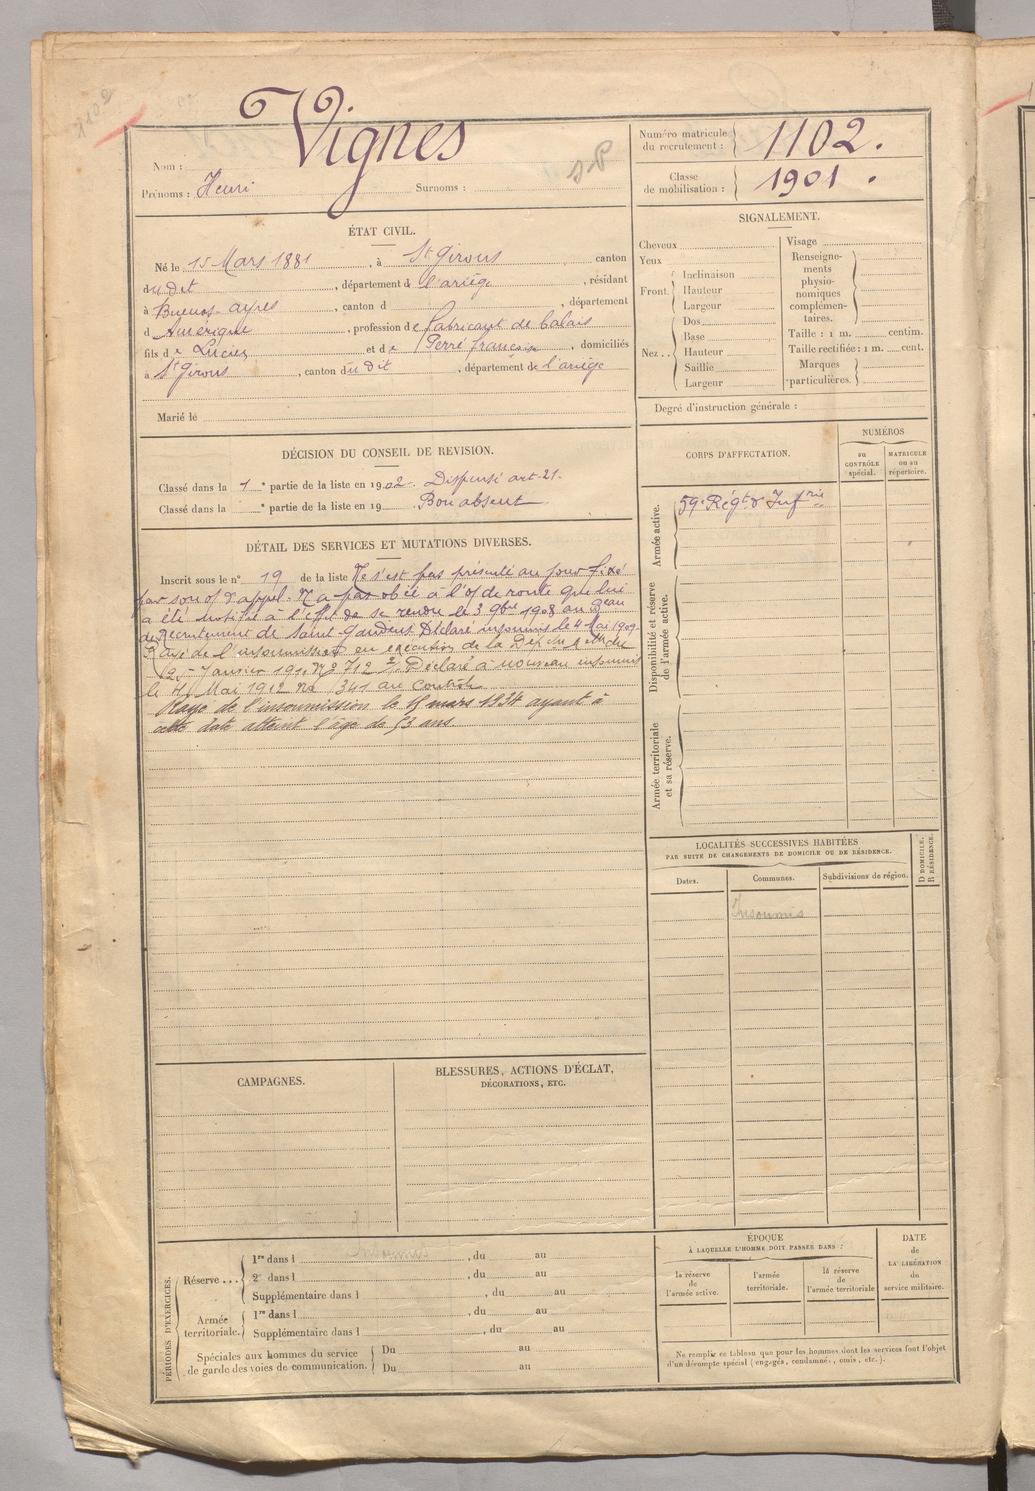 1102
Vignes
Nom :
Prénoms : Henri Surnoms :
Numéro matricule du recrutement : 1102.
Classe de mobilisation : 1901.
ÉTAT CIVIL.
Né le 15 Mars 1881, à St Girons canton
du dit, département d l'ariége, résidant
à Buenos-ayres, canton d , département
d Amérique, profession de fabricant de balais
fils de Lucien et de Perré françoise, domiciliés
à St Girons, canton du dit, département de l'ariége
Marié le
SIGNALEMENT.
Cheveux
Yeux
Front. Inclinaison
Hauteur
Largeur
Nez.. Dos
Base
Hauteur
Saillie
Largeur
Visage
Renseignements physionomiques complémentaires.
Taille : 1 m. centim.
Taille rectifiée : 1 m. cent.
Marques particulières.
Degré d'instruction générale :
DÉCISION DU CONSEIL DE REVISION.
Classé dans la 1e partie de la liste en 1902. Dispensé art. 21.
Classé dans la e partie de la liste en 19 . Bon absent
DÉTAIL DES SERVICES ET MUTATIONS DIVERSES.
Inscrit sous le n° 19 de la liste Ne s'est pas présenté au jour fixé
par son o/ d'appel. N'a pas obéi à l'o/ de route qui lui
a été notifié à l'effet de se rendre le 3 9bre 1908 au Beau
de Recrutement de Saint-Gaudens. Déclaré insoumis le 4 Mai 1909.
Rayé de l'insoumission en exécution de la Dép. du
25 Janvier 191 N° 2712 Déclaré à nouveau insoumis
le Mai 1912 No 341 au Contrôle
Rayé de l'insoumission le 15 mars 1934 ayant à
cette date atteint l'âge de 53 ans.
CORPS D'AFFECTATION.
NUMÉROS
au CONTRÔLE spécial.
MATRICULE ou au répertoire.
Armée active.
59e Régt d'Infrie
Disponibilité et réserve de l'armée active.
Armée territoriale et sa réserve.
LOCALITÉS SUCCESSIVES HABITÉES
PAR SUITE DE CHANGEMENTS DE DOMICILE OU DE RÉSIDENCE.
Dates. Communes. Subdivisions de région. D DOMICILE. R RÉSIDENCE.
Insoumis
CAMPAGNES.
BLESSURES, ACTIONS D'ÉCLAT,
DÉCORATIONS, ETC.
PÉRIODES D'EXERCICES.
Réserve ... 1re dans l Insoumis , du au
2e dans l , du au
Supplémentaire dans l , du au
Armée territoriale. 1re dans l , du au
Supplémentaire dans l , du au
Spéciales aux hommes du service de garde des voies de communication. Du au
Du au
ÉPOQUE
À LAQUELLE L'HOMME DOIT PASSER DANS :
la réserve de l'armée active.
l'armée territoriale.
la réserve de l'armée territoriale
DATE de LA LIBÉRATION du service militaire.
Ne remplir ce tableau que pour les hommes dont les services font l'objet
d'un décompte spécial (engagés, condamnés, omis, etc.).